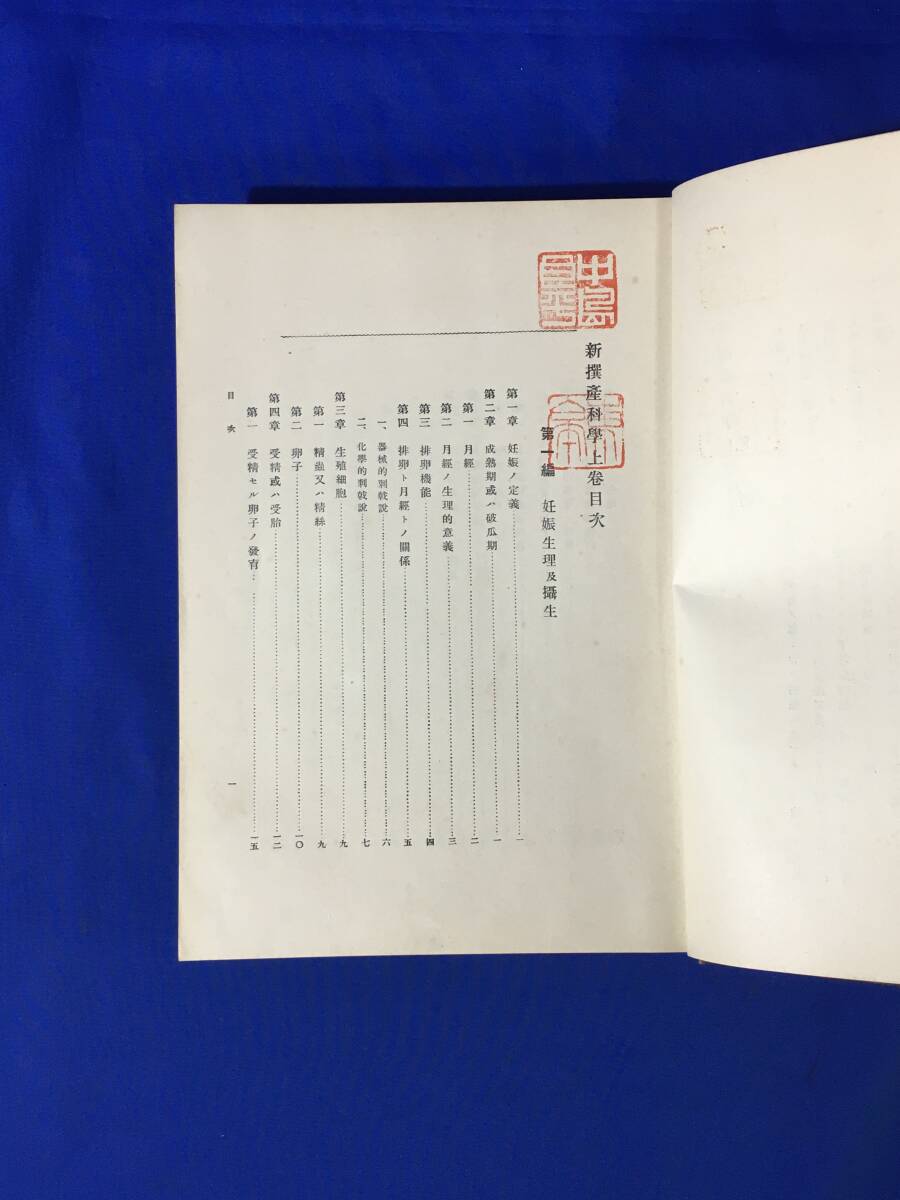 新撰產科學上卷目次
第一編 妊娠生理及攝生
第一章 妊娠ノ定義……一
第二章 成熟期或ハ破瓜期……一
第一 月經……二
第二 月經ノ生理的意義……三
第三 排卵機能……四
第四 排卵ト月經トノ關係……五
一、器械的刺戟說……六
二、化學的刺戟說……七
第三章 生殖細胞……九
第一 精蟲又ハ精絲……九
第二 卵子……一〇
第四章 受精或ハ受胎……一二
第一 受精セル卵子ノ發育……一五
目次 一
中島